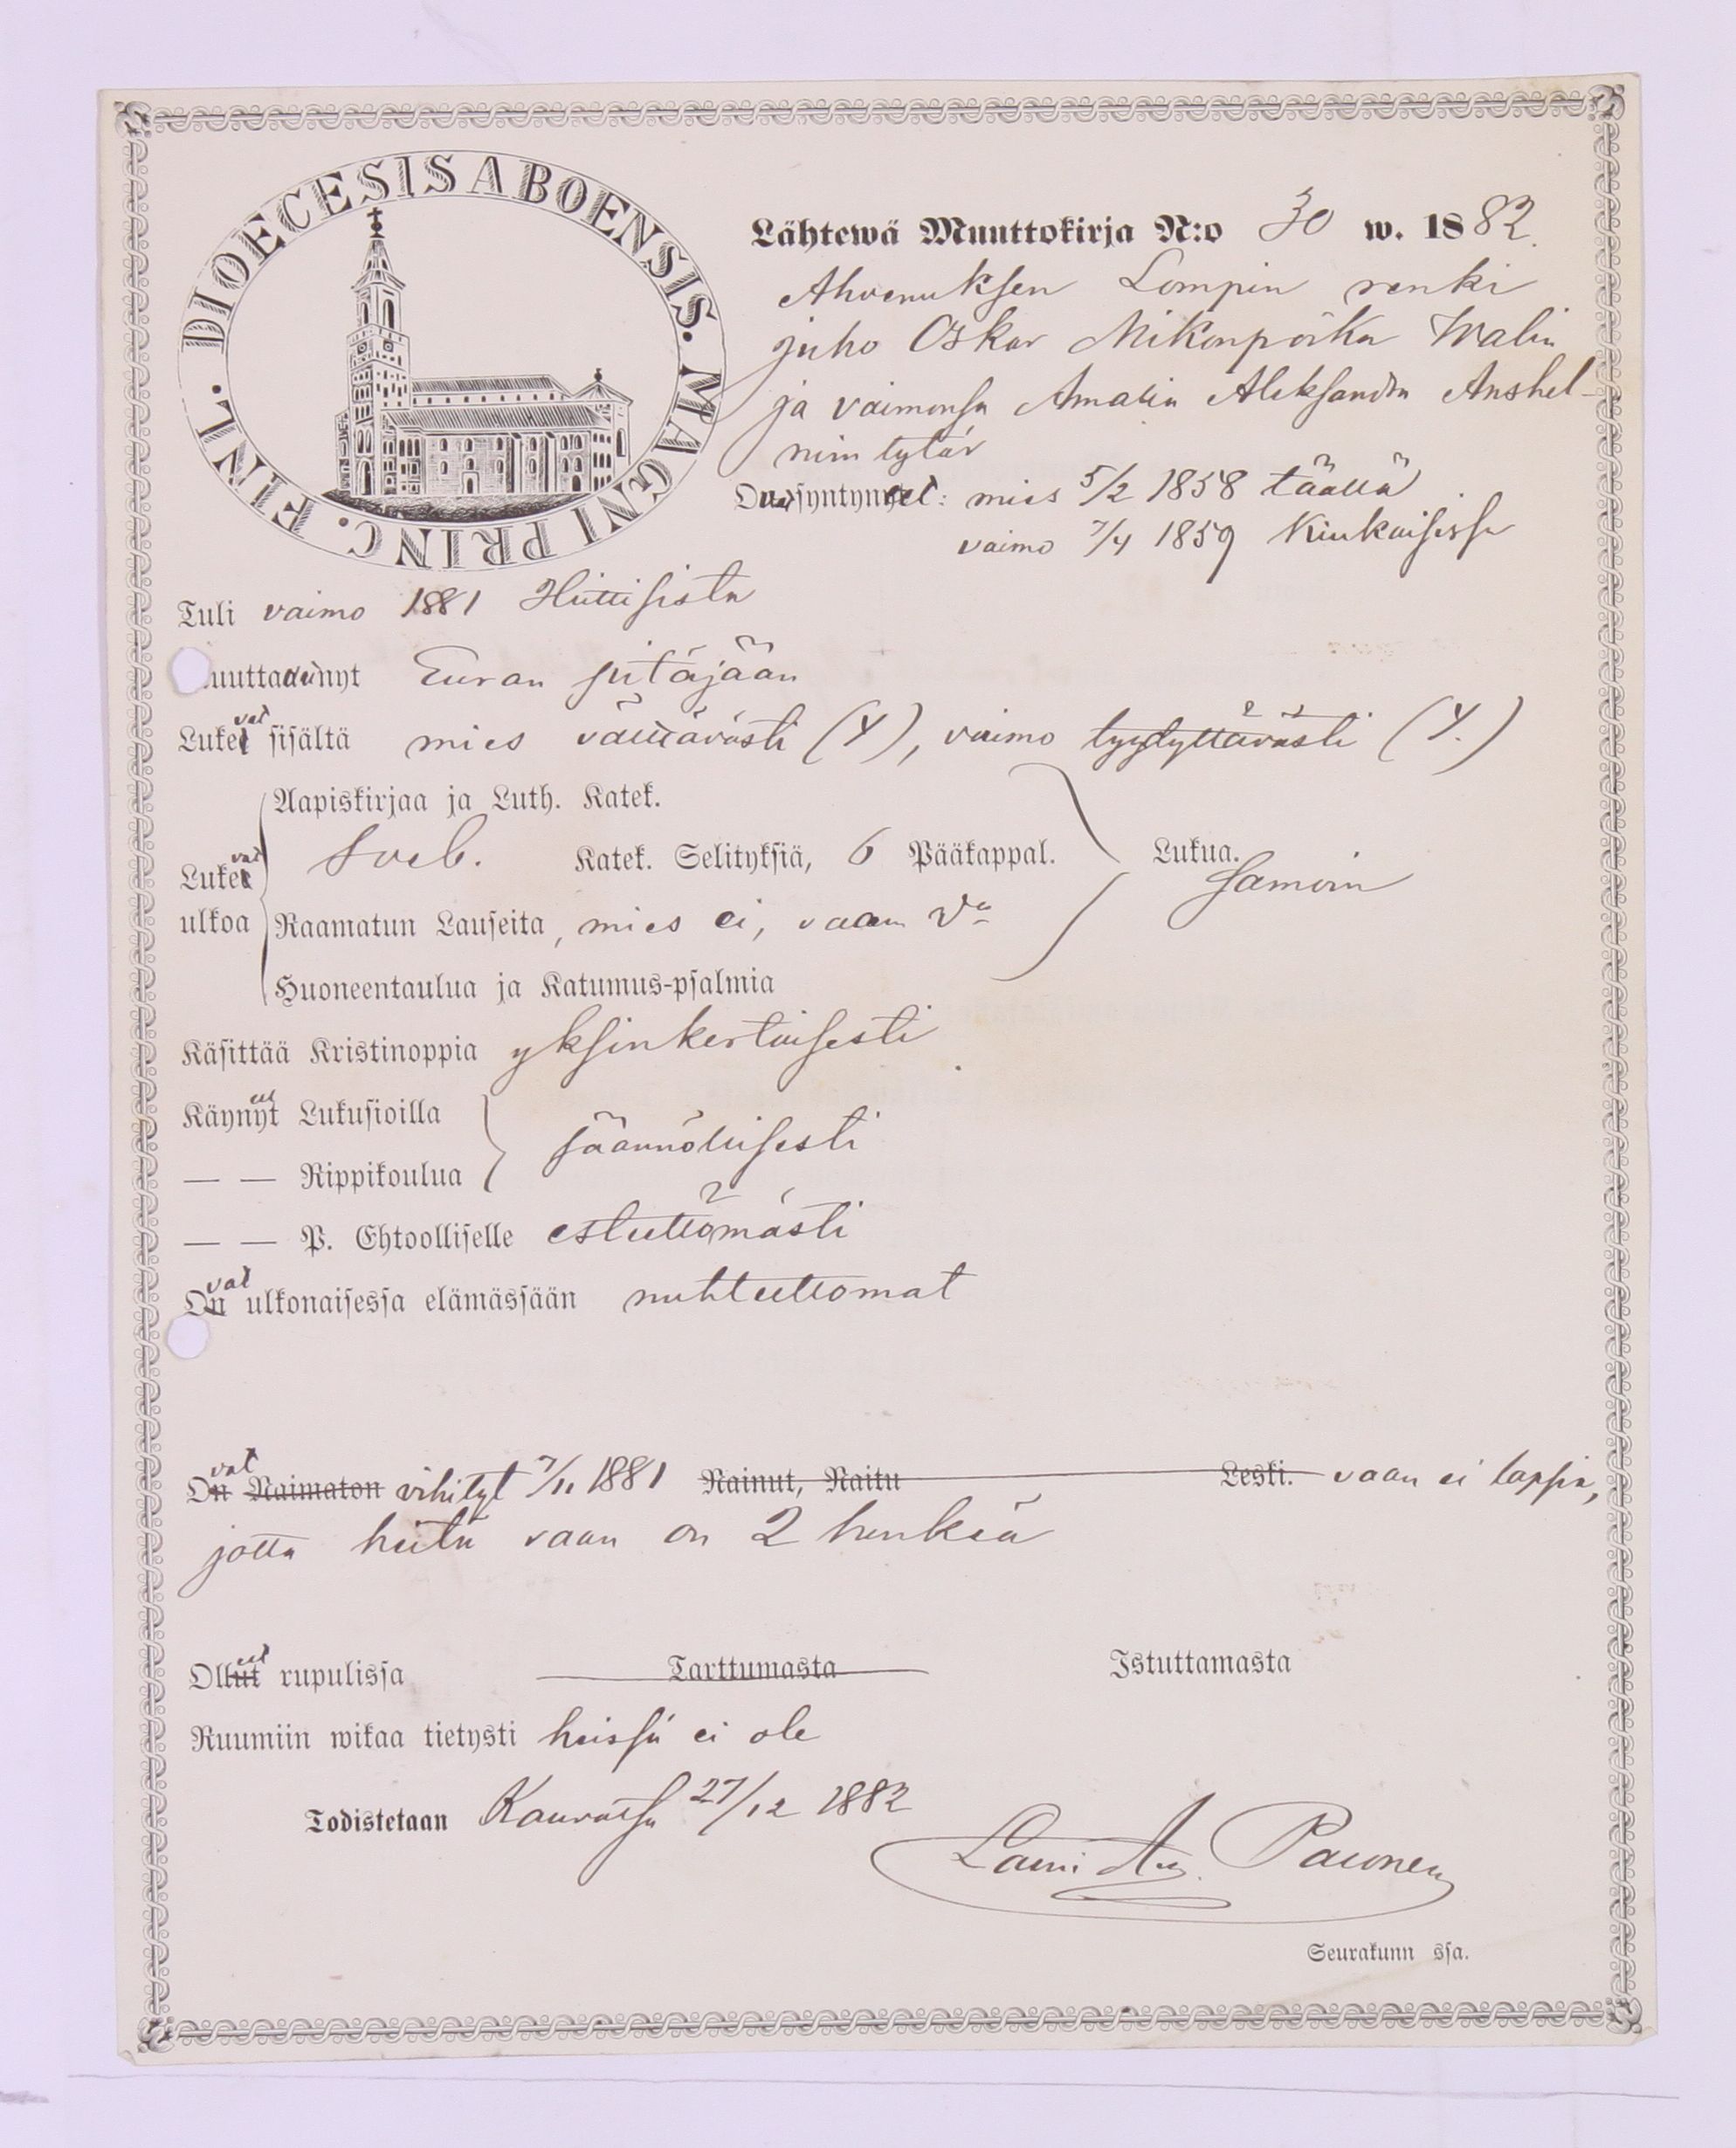 DIOECESIS ABOENSIS. MAGNI PRINC. FINL.
Lähtewä Muuttokirja N:o 30 w. 1882.
Ahvenuksen Lompin renki
Juho Oskar Mikonpoika Walin
ja vaimonsa Amalia Aleksandra Anshel-
min tytär
Ovat syntyneet: mies 5/2 1858 täällä
vaimo 7/4 1859 Kiukaisissa
Tuli vaimo 1881 Hiittisistä
Muuttaa nyt Euran pitäjään
Lukevat sisältä mies välttävästi (Y), vaimo tyydyttävästi (Y.)
Aapiskirjaa ja Luth. Katek.
Lukevat Sveb. Katek. Selityksiä, 6 Pääkappal. Lukua. Samoin
ulkoa Raamatun Lauseita, mies ei, vaan
Huoneentaulua ja Katumus-psalmia
Käsittää Kristinoppia yksinkertaisesti.
Käyneet Lukusioilla
säännöllisesti
— — Rippikoulua
— — P. Ehtoolliselle esteettömästi
Ovat ulkonaisessa elämässään nuhteettomat
Ovat Naimaton vihityt 7/11 1881 Nainut, Naitu Leski. vaan ei lapsia,
jotta heitä vaan on 2 henkeä
Olleet rupulissa Tarttumasta Istuttamasta
Ruumiin wikaa tietysti heissä ei ole
Todistetaan Kauvatsa 27/12 1882
Lauri Aug. Paunonen
Seurakunn ssa.